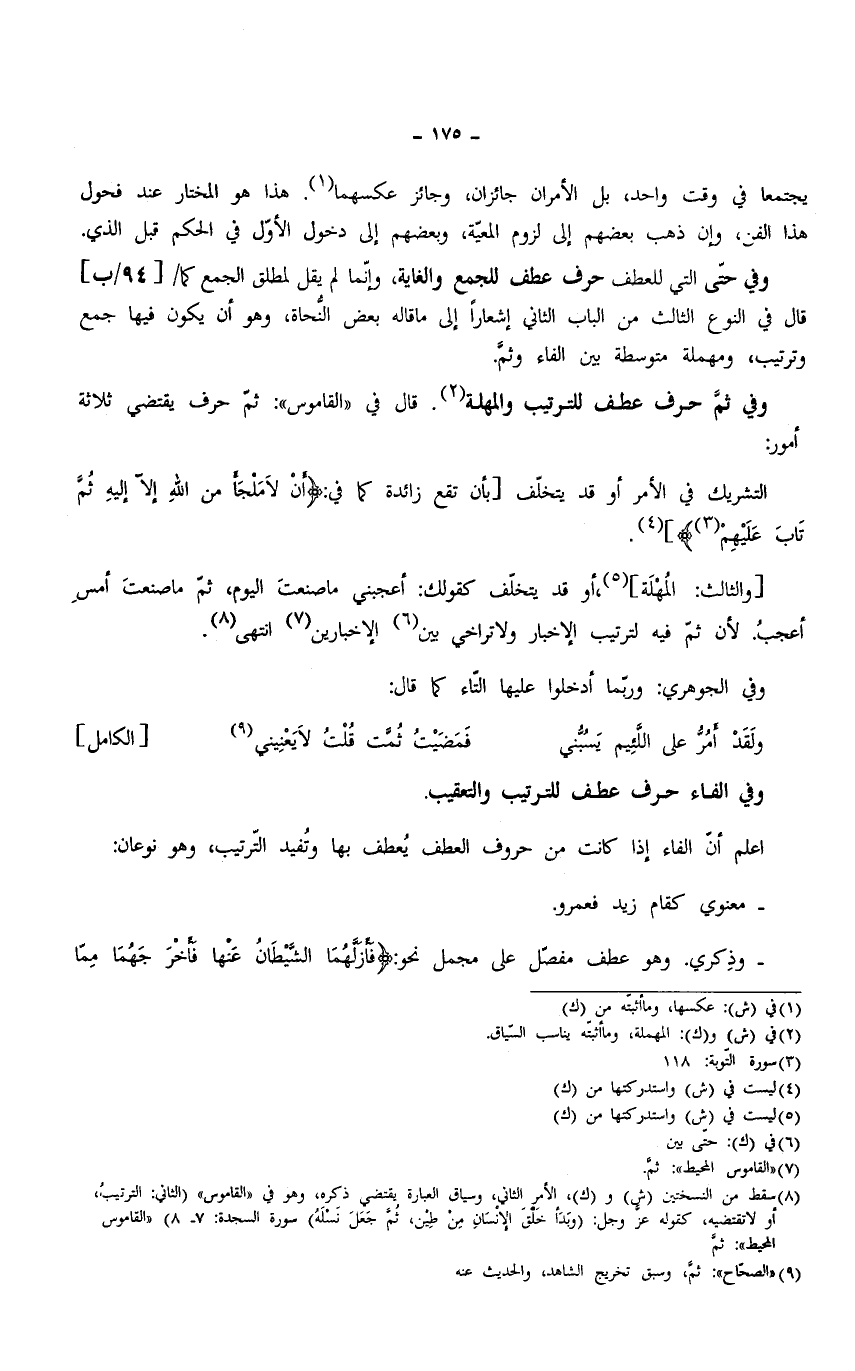 ـ ١٧٥ ـ
يجتمعا في وقت واحد، بل الأمران جائزان، وجائز عكسهما(١). هذا هو المختار عند فحول
هذا الفن، وإن ذهب بعضهم إلى لزوم المعيّة، وبعضهم إلى دخول الأوّل في الحكم قبل الذي.
وفي حتّى التي للعطف حرف عطف للجمع والغاية، وإنّما لم يقل لمطلق الجمع كما/ [٩٤/ب]
قال في النوع الثالث من الباب الثاني إشعاراً إلى ماقاله بعض النُّحاة، وهو أن يكون فيها جمع
وترتيب، ومهملة متوسطة بين الفاء وثمَّ.
وفي ثمَّ حـرف عطـف للتـرتيب والمهلـة(٢). قال في «القاموس»: ثمّ حرف يقتضي ثلاثة
أمور:
التشريك في الأمر أو قد يتخلّف [بأن تقع زائدة كما في:﴿أَنْ لاَمَلْجَأَ من اللهِ إلاّ إليهِ ثُمَّ
تَابَ عَلَيْهِمْ(٣)﴾](٤).
[والثالث: المُهْلَة](٥)،أو قد يتخلّف كقولك: أعجبني ماصنعتَ اليوم، ثمّ ماصنعتَ أمسِ
أعجبُ. لأن ثمّ فيه لترتيب الإخبار ولاتراخي بين(٦) الإخبارين(٧) انتهى(٨).
وفي الجوهري: وربّما أدخلوا عليها التّاء كما قال:
ولَقَدْ أَمُرُّ على اللَّئِيم يَسُبُّني فَمَضَيْتُ ثُمَّت قُلْتُ لاَيَعْنِيني(٩) [الكامل]
وفي الفـاء حـرف عطـف للتـرتيب والتعقيب.
اعلم أنّ الفاء إذا كانت من حروف العطف يُعطف بها وتُفيد التّرتيب، وهو نوعان:
ـ معنوي كقام زيد فعمرو.
ـ وذِكري. وهو عطف مفصّل على مجمل نحو:﴿فَأَزَلَّهُمَا الشَّيْطَانُ عَنْها فَأَخْرَ جَهُمَا مِمّا
(١)في (ش): عكسها، وماأثبتّه من (ك)
(٢)في (ش) و(ك): المهملة، وماأثبتّه يناسب السّياق.
(٣)سورة التّوبة: ١١٨
(٤)ليست في (ش) واستدركتها من (ك)
(٥)ليست في (ش) واستدركتها من (ك)
(٦)في (ك): حتّى بين
(٧)«القاموس المحيط»: ثمَّ.
(٨)سقط من النسختين (ش) و (ك)، الأمر الثاني، وسياق العبارة يقتضي ذكره، وهو في «القاموس» (الثاني: الترتيبُ،
أو لاتقتضيه، كقوله عزّ وجل: (وبَدَأ خَلْقَ الإنْسَانِ مِنْ طِين، ثُمَّ جَعَلَ نَسْلَهُ) سورة السجدة: ٧ـ ٨) «القاموس
المحيط»: ثمَّ
(٩)«الصحّاح»: ثمَّ، وسبق تخريج الشاهد، والحديث عنه